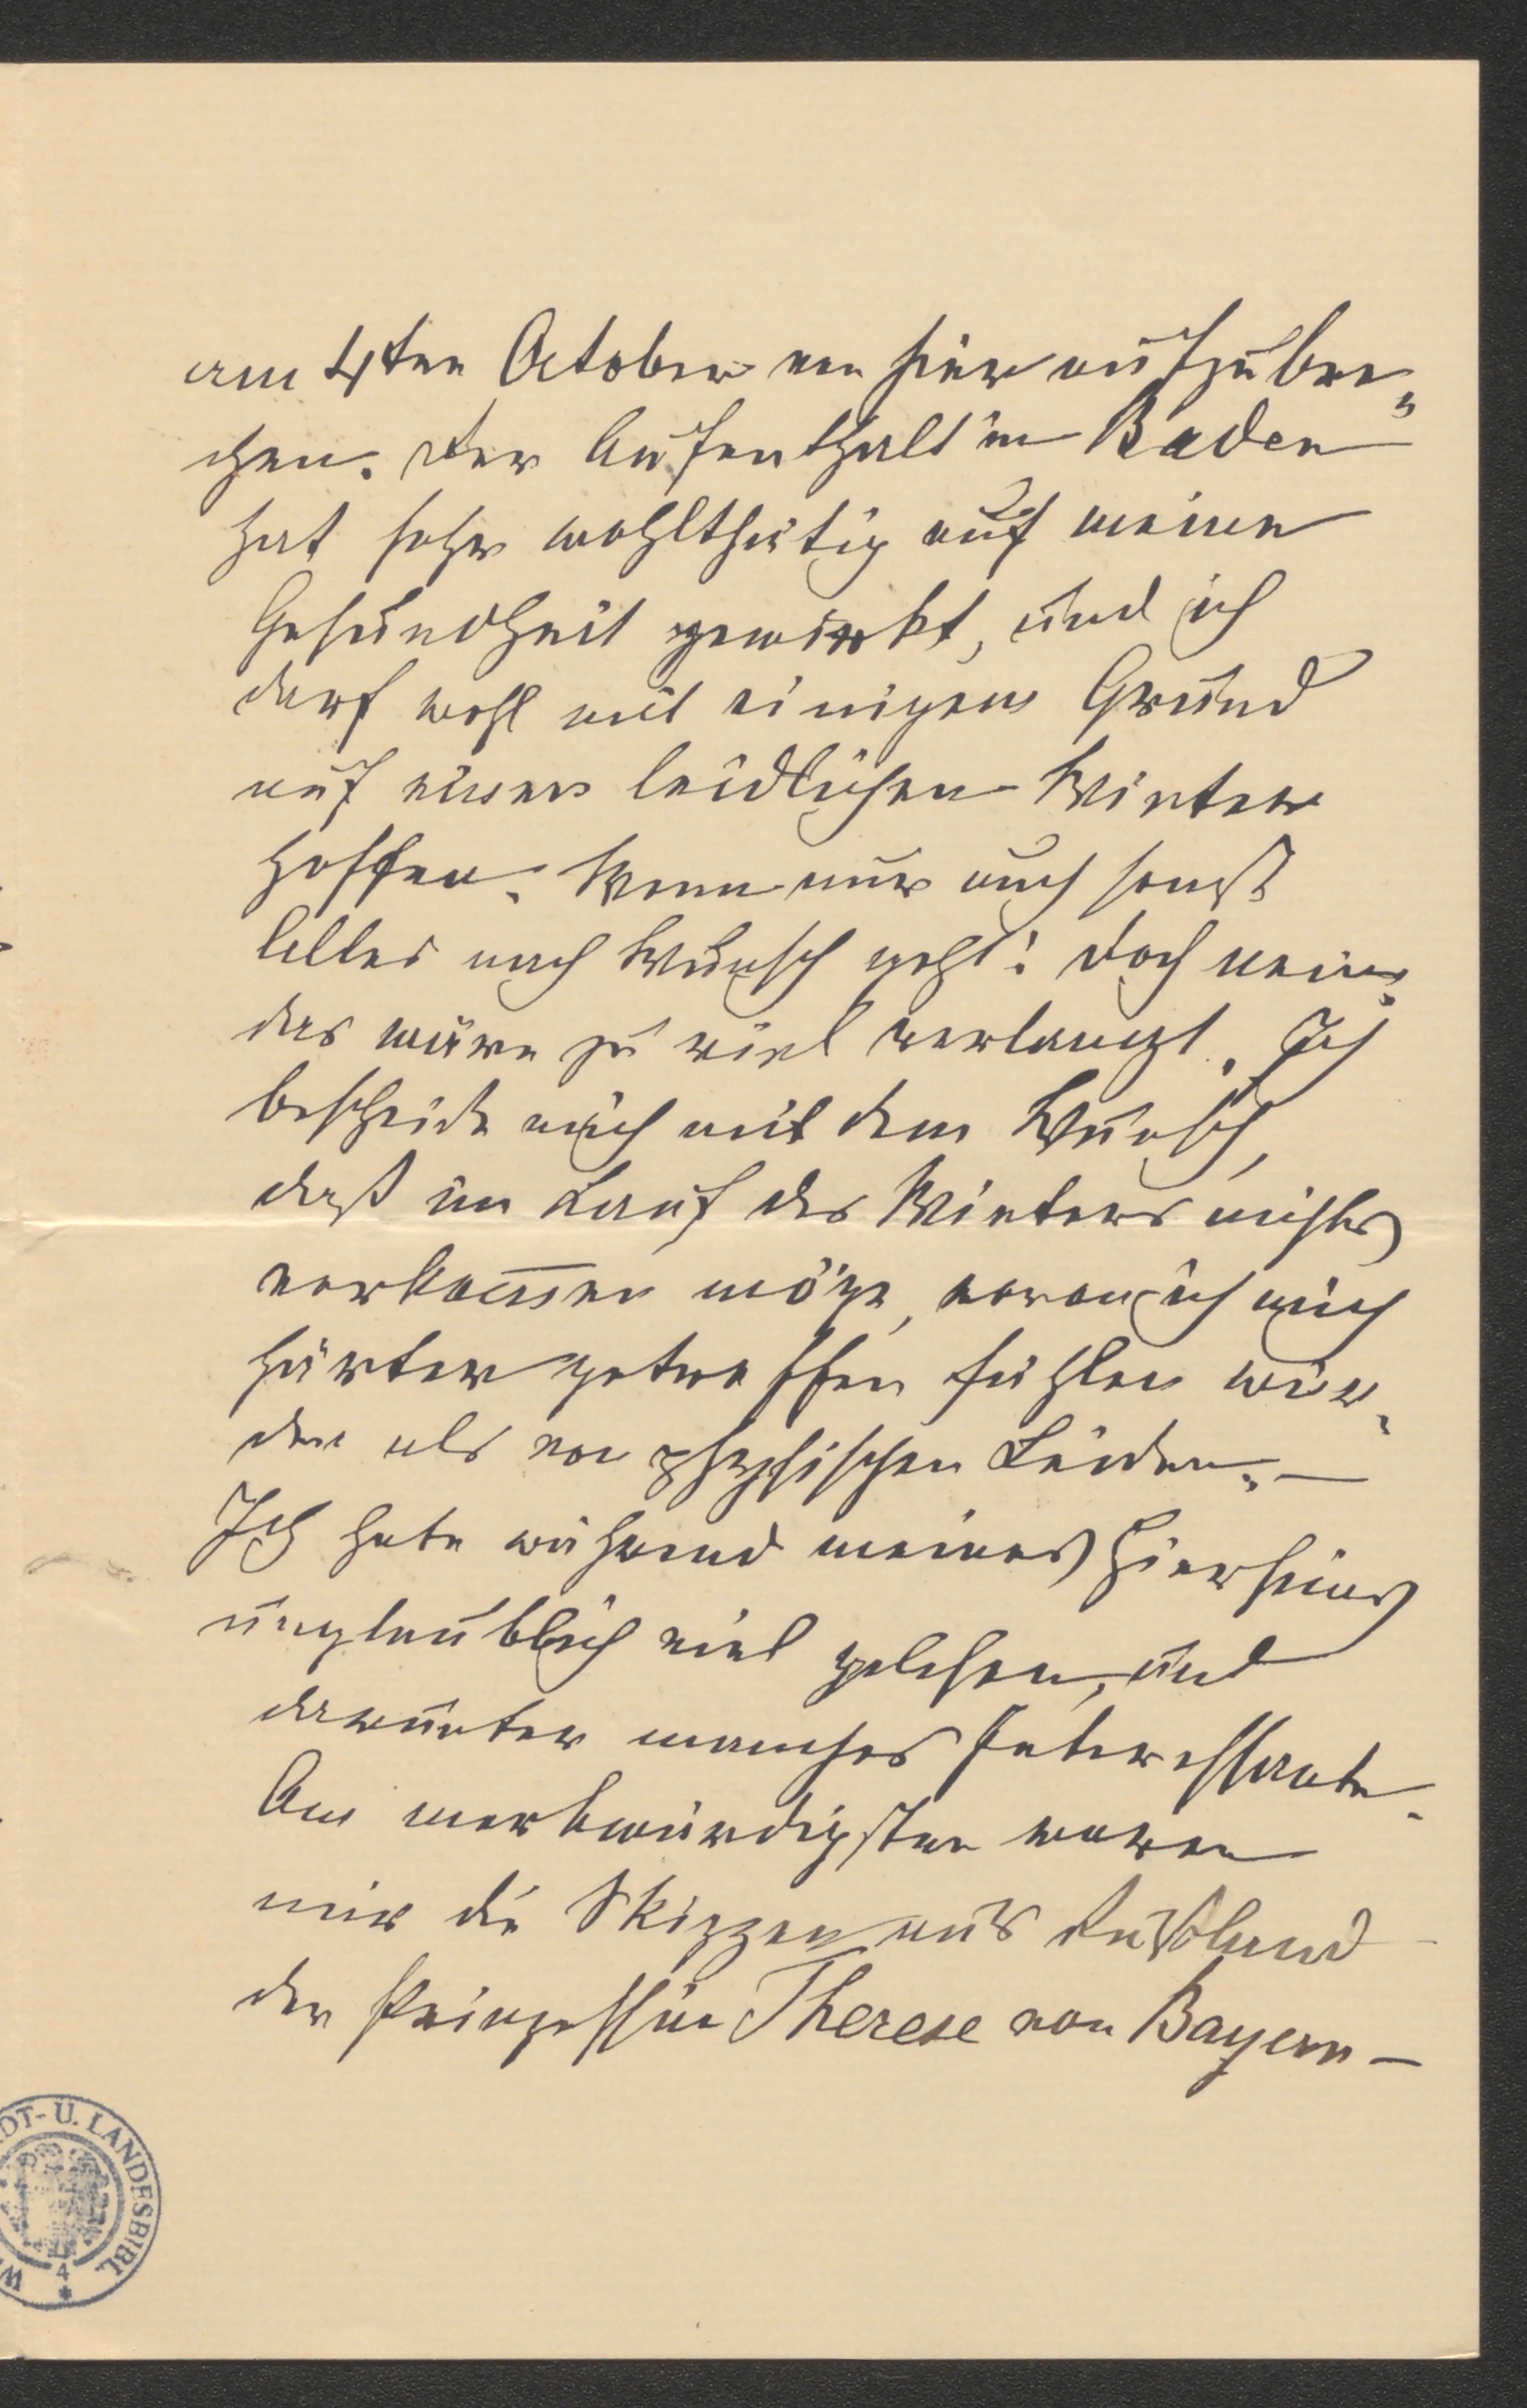 am 4ten October von hier aufzubre-
chen. Der Aufenthalt in Baden
hat sehr wohlthätig auf meine
Gesundheit gewirkt, und ich
darf wohl mit einigem Grund
auf einen leidlichen Winter
hoffen. Wenn nur auch sonst
Alles nach Wunsch geht! doch nein,
das wäre zu viel verlangt. Ich
bescheide mich mit dem Wunsch,
daß im Lauf des Winters nichts
vorkom̅en möge, wovon ich mich
härter getroffen fühlen wür-
de als von physischen Leiden. —
Ich habe während meines Hierseins
unglaublich viel gelesen, und
darunter manches Interessante.
Am merkwürdigsten waren
mir die Skizzen aus Rußland
der Prinzessin Therese von Bayern —
DT- U. LANDESBIBL.
4